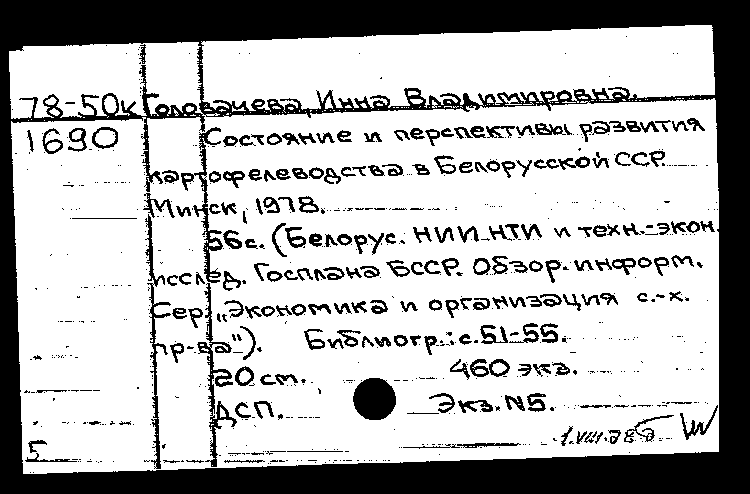 78-50к Головачева, Инна Владимировна.
1690 Состояние и перспективы развития
картофелеводства в Белорусской ССР.
Минск, 1978.
56с. (Белорус. НИИ НТИ и техн.-экон.
исслед. Госплана БССР. Обзор. информ.
Сер. „Экономика и организация с.-х.
пр-ва"). Библиогр.: с.51-55.
20 см. 460 экз.
ДСП. Экз. №5.
5